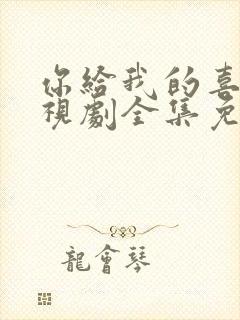 你給我的喜
視劇全集免
龍會琴